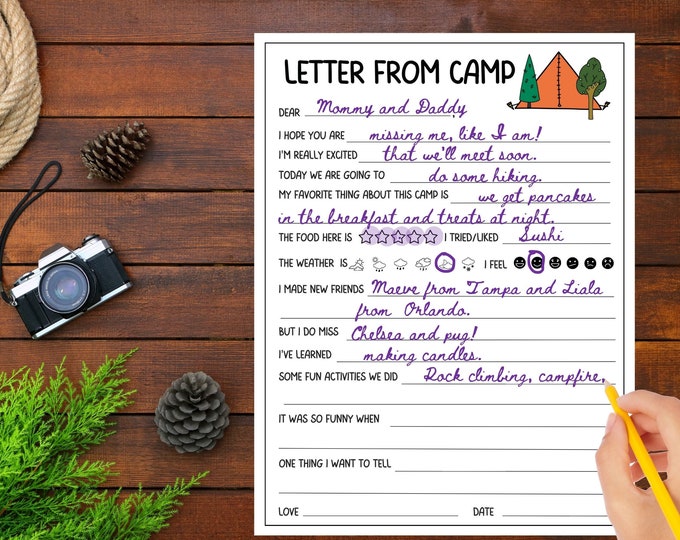 LETTER FROM CAMP
DEAR Mommy and Daddy
I HOPE YOU ARE missing me, like I am!
I'M REALLY EXCITED that we'll meet soon.
TODAY WE ARE GOING TO do some hiking.
MY FAVORITE THING ABOUT THIS CAMP IS we get pancakes
in the breakfast and treats at night.
THE FOOD HERE IS I TRIED/LIKED Sushi
THE WEATHER IS I FEEL
I MADE NEW FRIENDS Maeve from Tampa and Liala
from Orlando.
BUT I DO MISS Chelsea and pug!
I'VE LEARNED making candles.
SOME FUN ACTIVITIES WE DID Rock climbing, campfire,
IT WAS SO FUNNY WHEN
ONE THING I WANT TO TELL
LOVE DATE